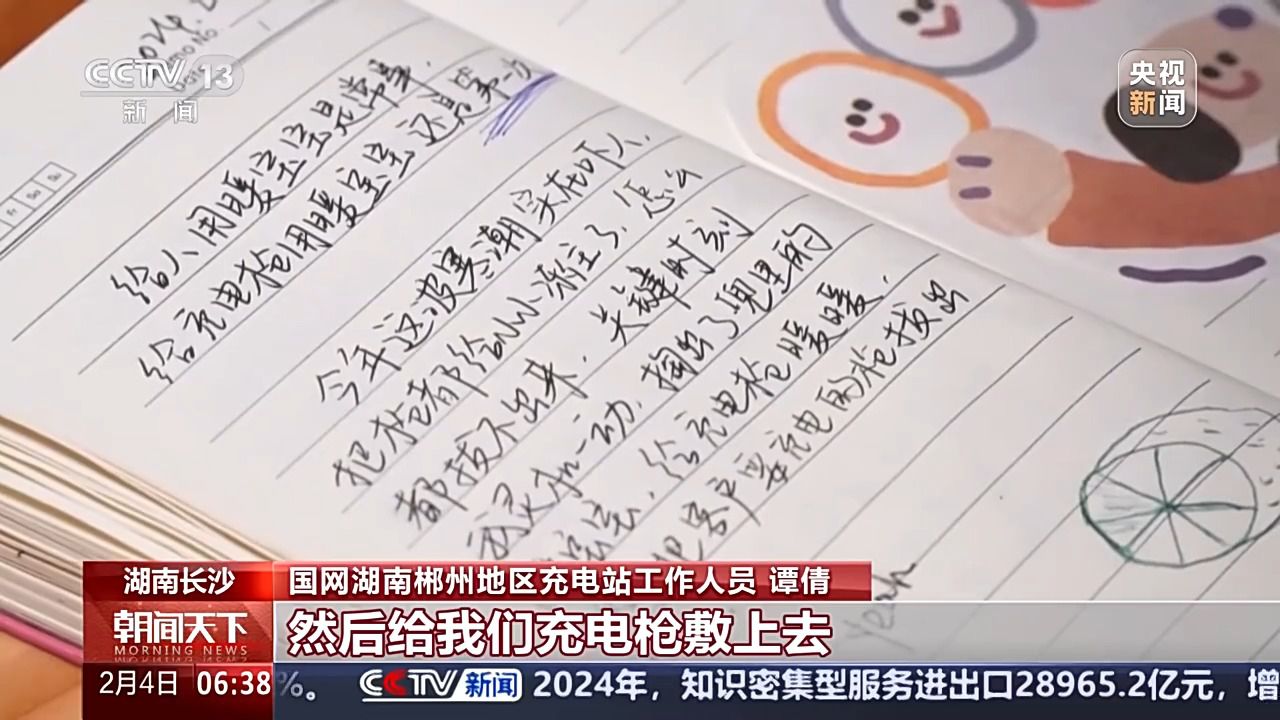 CCTV 13
新闻
央视
新闻
给人用暖宝宝是常事,
给充电枪用暖宝宝还是第一次
今年这波寒潮实在吓人,
把枪都给冰冻住了,怎么
都拔不出来,关键时刻
我灵机一动,掏出了兜里的
宝宝,给充电枪暖暖,
把客户要充电的枪拔出
Yeah
湖南长沙
国网湖南郴州地区充电站工作人员 谭倩
朝闻天下
MORNING NEWS
然后给我们充电枪敷上去
2月4日 06:38
%。 CCTV新闻 2024年，知识密集型服务进出口28965.2亿元，增